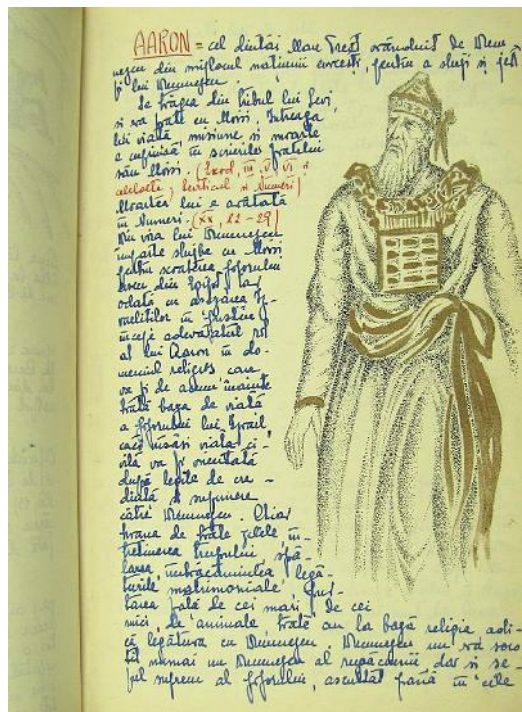 AARON = cel dintâi Mare Preot orânduit de Dum
nezeu din mijlocul națiunii evreești, pentru a sluji și jert
fi lui Dumnezeu.
Se trăgea din tribul lui Levi,
și era frate cu Moisi. Întreaga
lui viață, misiune și moarte
e cuprinsă în scrierile fratelui
său Moisi. (Exod, III, V, VI și
celelalte; Leviticul și Numeri)
Moartea lui e arătată
în Numeri. (XX, 22-29)
Din voia lui Dumnezeu
împarte slujba cu Moisi
pentru scoaterea poporului
evreu din Egipt. Iar
odată cu așezarea Is-
raeliților în pustiu
începe adevăratul rol
al lui Aaron în do-
meniul religios care
va fi de acum înainte
toată baza de viață
a poporului lui Israil,
căci însăși viața ci-
vilă va fi orientată
după legile de cre-
dință și supunere
către Dumnezeu. Chiar
hrana de toate zilele, în-
treținerea trupului, spă-
larea, îmbrăcămintea, legă-
turile matrimoniale,
tarea față de cei mari, de cei
mici, de animale, toate au la bază religia, adi-
că legătura cu Dumnezeu. Dumnezeu nu era soco
tit numai un Dumnezeu al rugăciunii, dar și șe-
ful suprem al poporului, ascultat până în cele